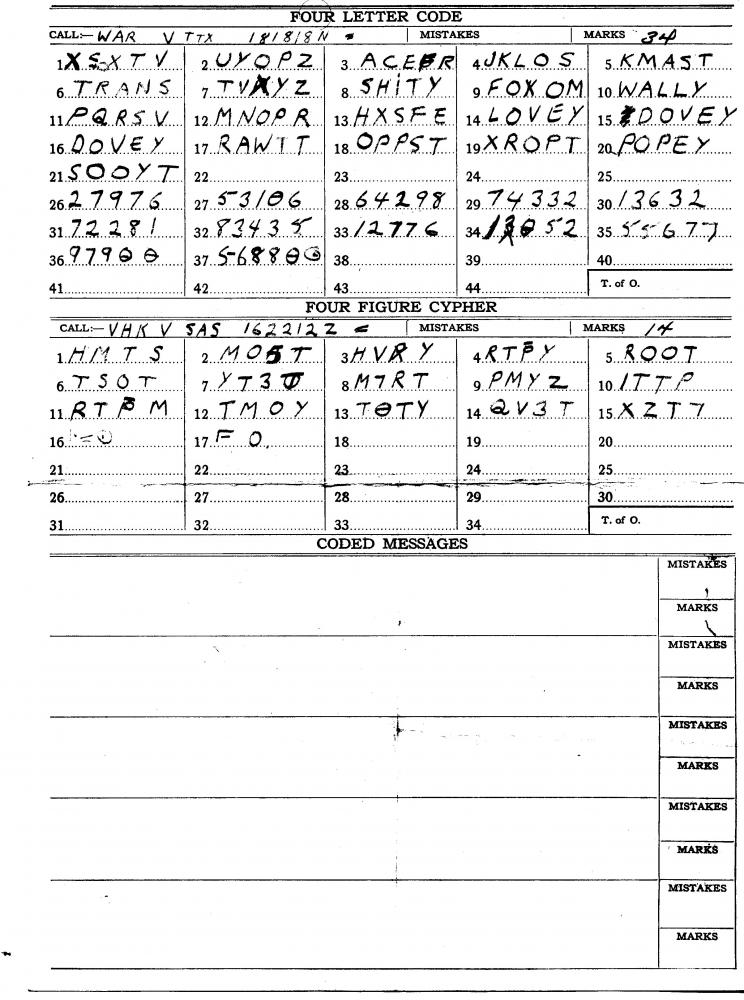 FOUR LETTER CODE
CALL:— WAR V TTX 181818N = MISTAKES MARKS 34
1. XSXTV 2. UYOPZ 3. ACEBR 4. JKLOS 5. KMAST
6. TRANS 7. TVXYZ 8. SHITY 9. FOXOM 10. WALLY
11. PQRSV 12. MNOPR 13. HXSFE 14. LOVEY 15. DOVEY
16. DOVEY 17. RAWTT 18. OPPST 19. XROPT 20. POPEY
21. SOOYT 22. 23. 24. 25.
26. 27976 27. 53106 28. 64298 29. 74332 30. 13632
31. 72281 32. 83435 33. 12776 34. 35. 55677
36. 97900 37. 568800 38. 39. 40.
41. 42. 43. 44. T. of O.
FOUR FIGURE CYPHER
CALL:— VHK V SAS 162212Z = MISTAKES MARKS 14
1. HMTS 2. MOST 3. HVRY 4. RTPY 5. ROOT
6. TSOT 7. YT3 8. M7RT 9. PMYZ 10. ITTP
11. RTPM 12. TMOY 13. TOTY 14. QV3T 15. XZT7
16. 17. F O. 18. 19. 20.
21. 22. 23. 24. 25.
26. 27. 28. 29. 30.
31. 32. 33. 34. T. of O.
CODED MESSAGES
MISTAKES
MARKS
MISTAKES
MARKS
MISTAKES
MARKS
MISTAKES
MARKS
MISTAKES
MARKS